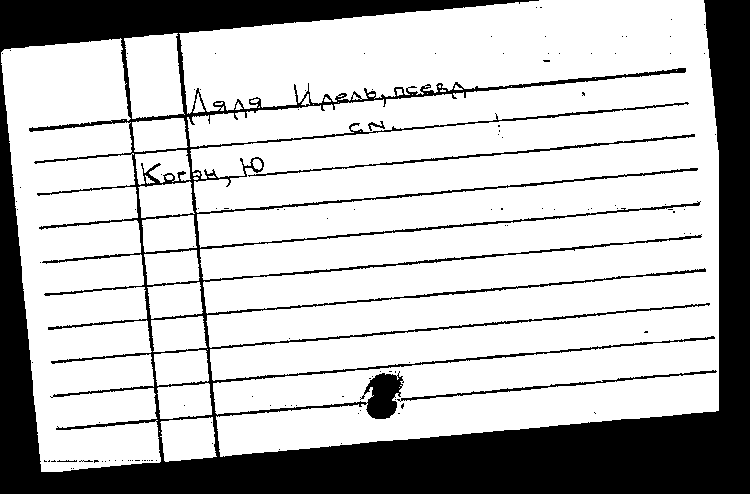 Дядя Идель, псевд.
см.
Коган, Ю